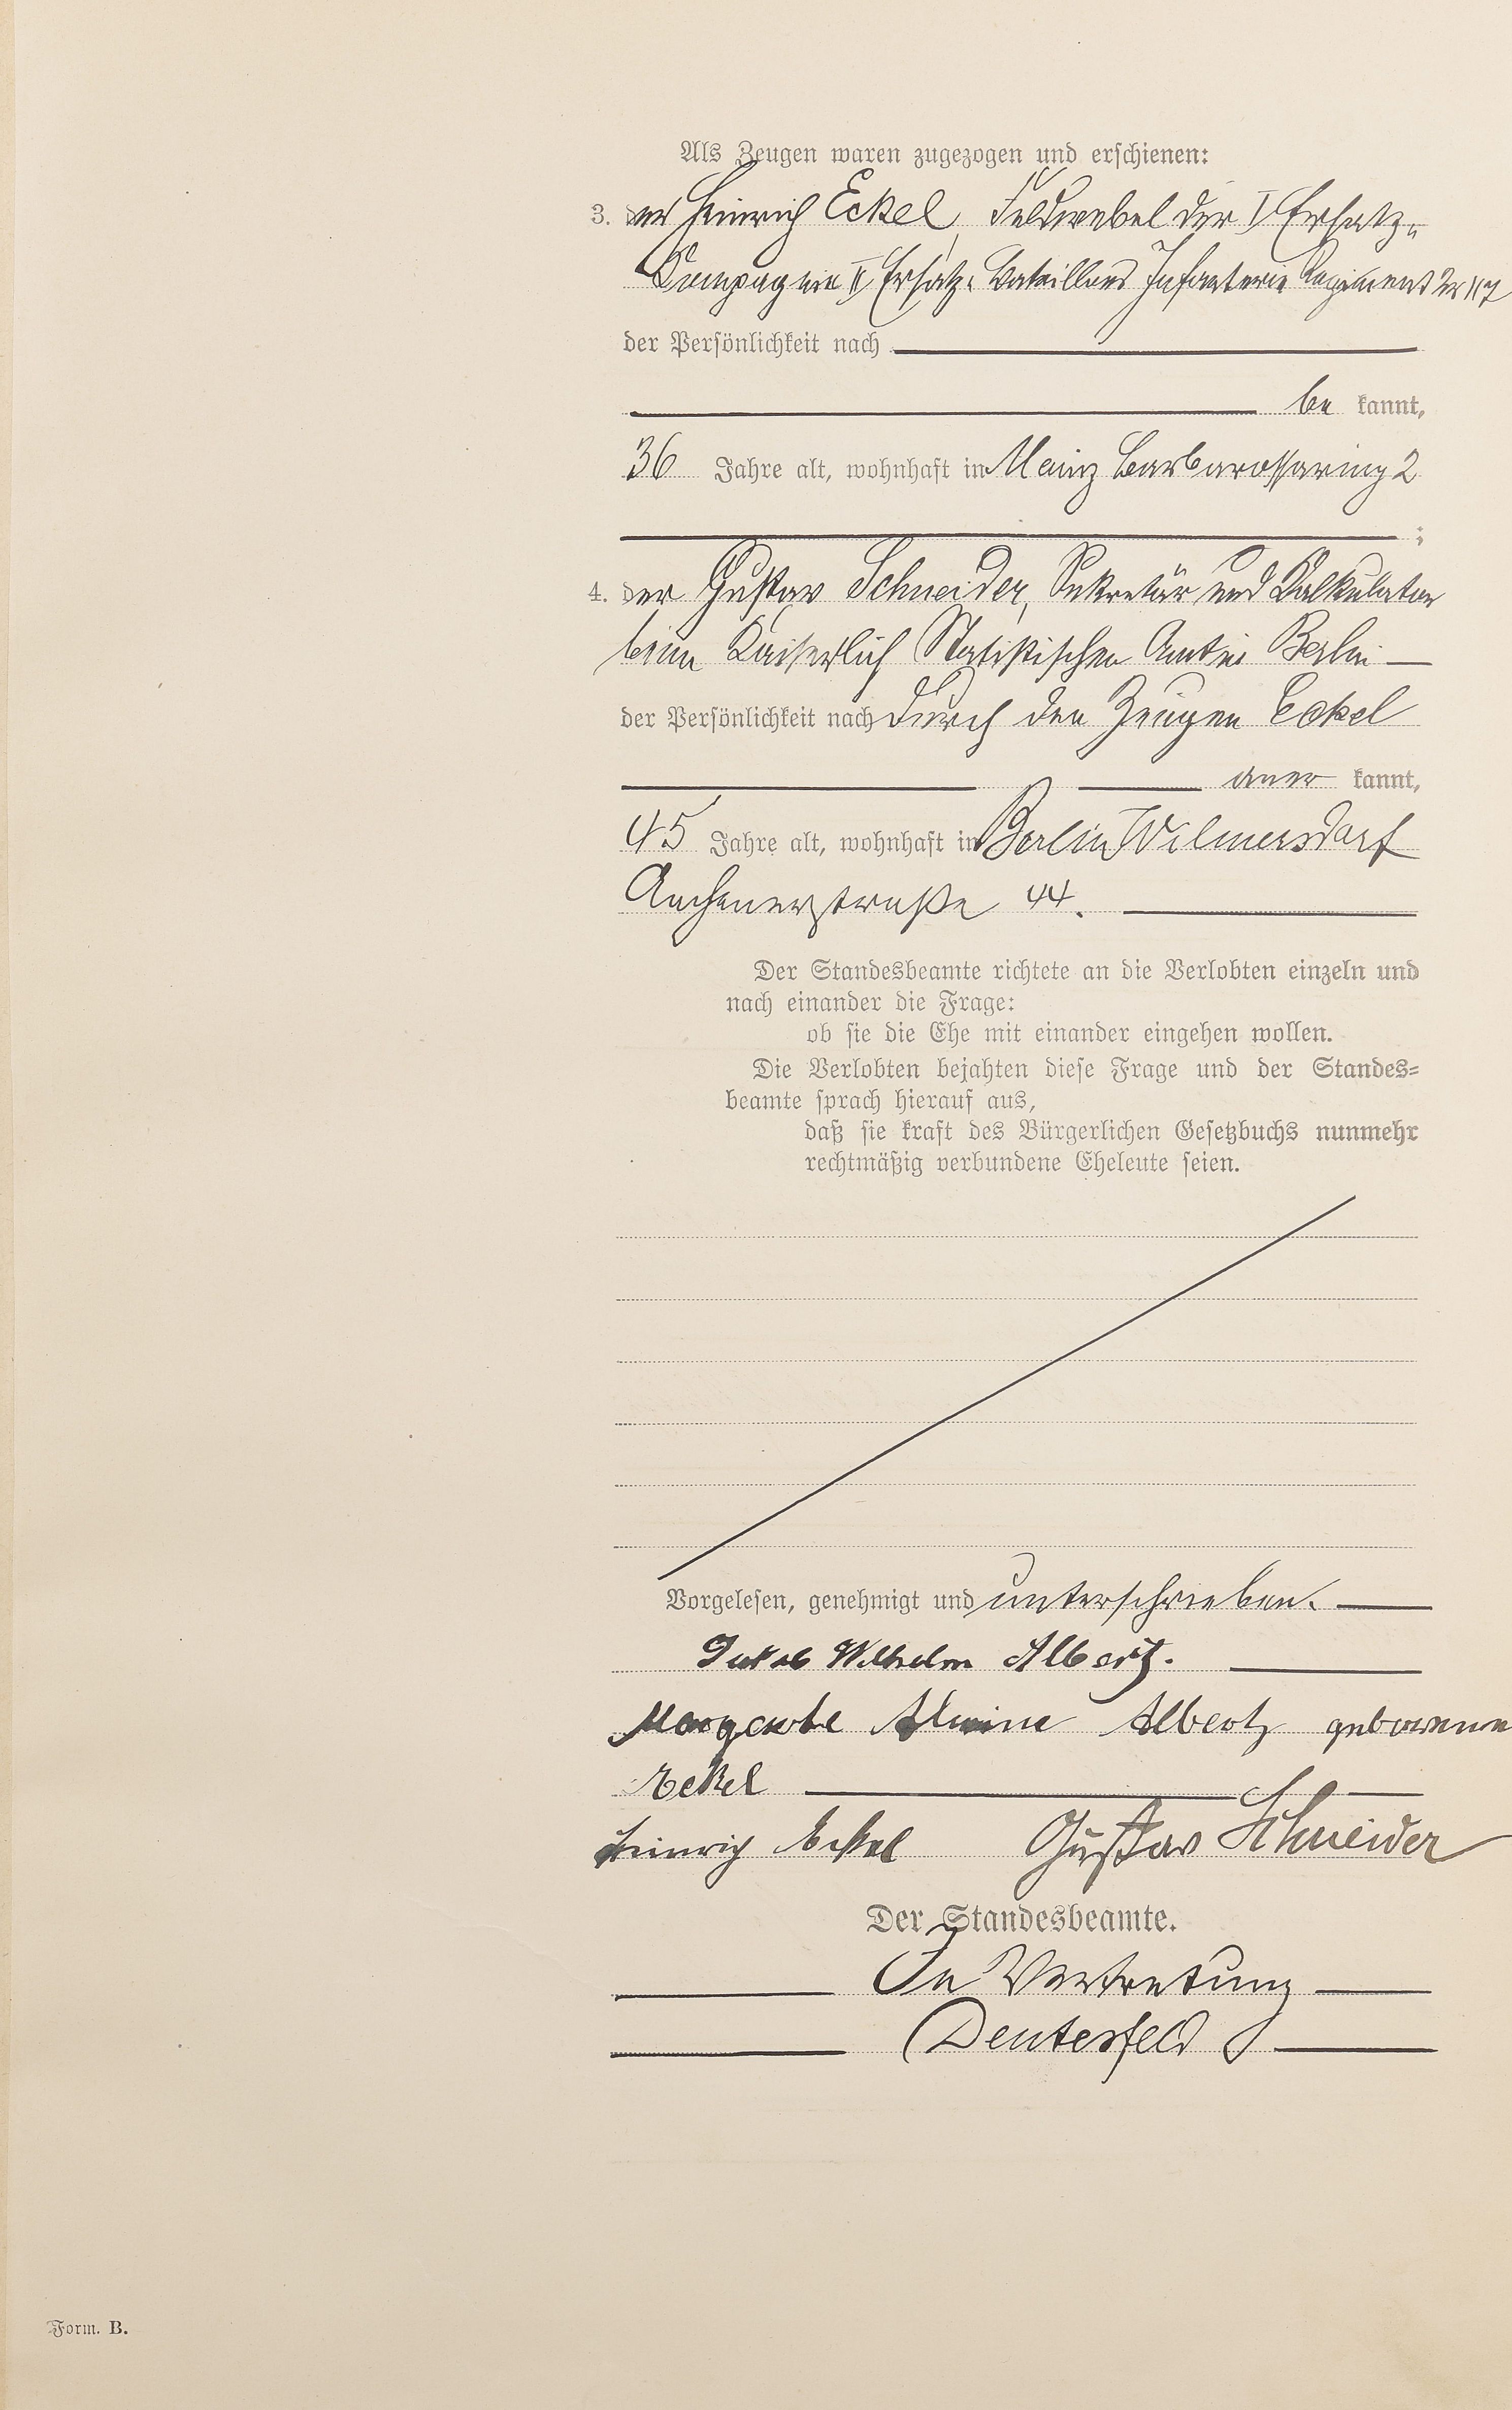 Als Zeugen waren zugezogen und erschienen:
3. der Heinrich Eckel, Feldwebel der I Ersatz-
Compagnie II Ersatz-Bataillons Infanterie Regiment Nr 117
der Persönlichkeit nach
be kannt,
36 Jahre alt, wohnhaft in Mainz Barbarossaring 2
;
4. der Gustav Schneider, Sekretär und Kalkulator
beim Kaiserlich Statistischen Amt in Berlin
der Persönlichkeit nach durch den Zeugen Eckel
aner kannt,
45 Jahre alt, wohnhaft in Berlin Wilmersdorf
Aachenerstraße 44.
Der Standesbeamte richtete an die Verlobten einzeln und
nach einander die Frage:
ob sie die Ehe mit einander eingehen wollen.
Die Verlobten bejahten diese Frage und der Standes-
beamte sprach hierauf aus,
daß sie kraft des Bürgerlichen Gesetzbuchs nunmehr
rechtmäßig verbundene Eheleute seien.
Vorgelesen, genehmigt und unterschrieben.
Jakob Wilhelm Albertz.
Margarete Albertz geborene
Eckel
Heinrich Eckel Gustav Schneider
Der Standesbeamte.
In Vertretung
Deutesfeld
Form. B.